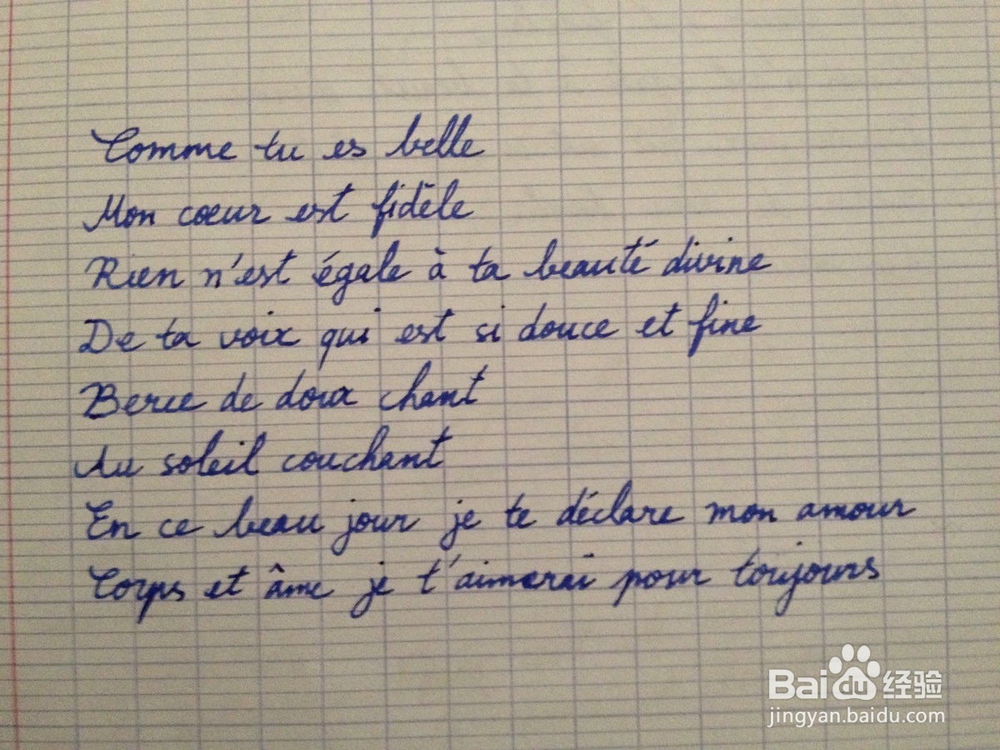 Comme tu es belle
Mon coeur est fidèle
Rien n'est égale à ta beauté divine
De ta voix qui est si douce et fine
Berce de doux chant
Au soleil couchant
En ce beau jour je te déclare mon amour
Corps et âme je t'aimerai pour toujours
Baidu经验
jingyan.baidu.com